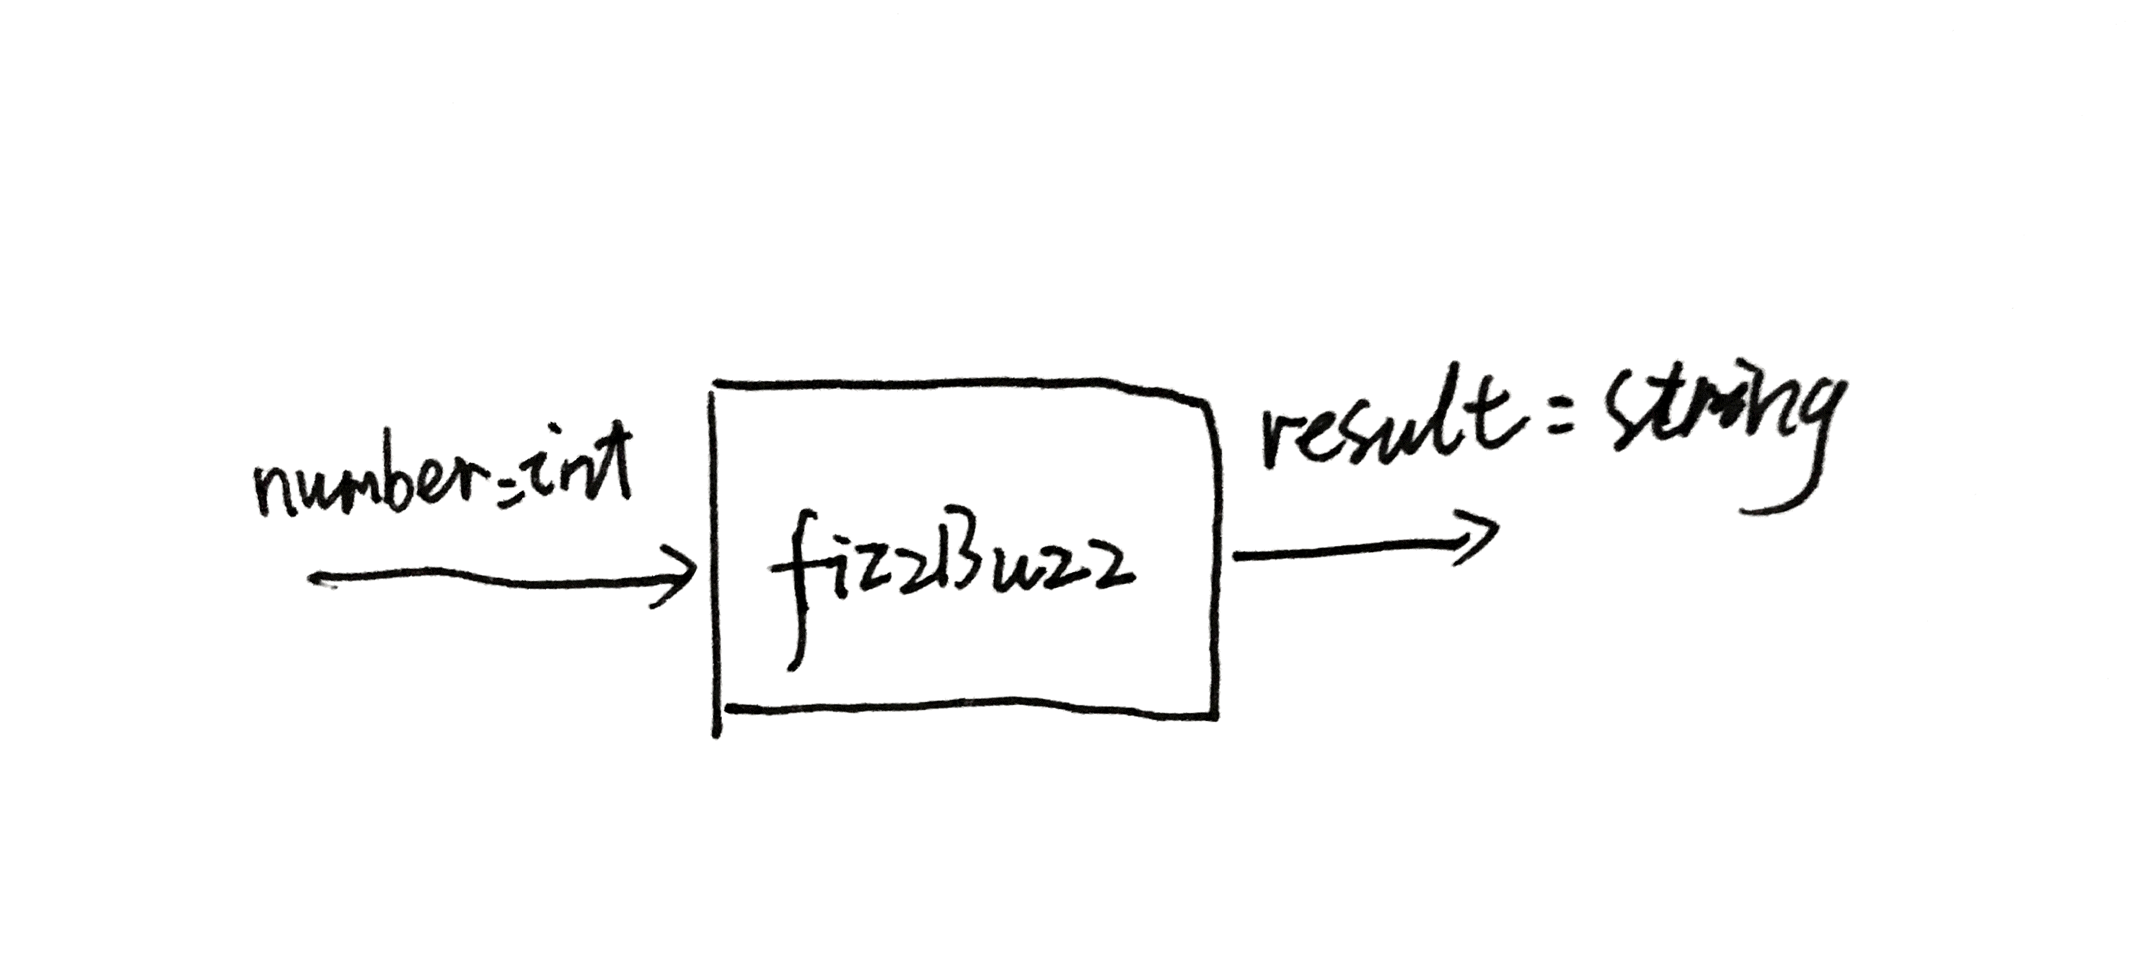 number=int
fizzBuzz
result=string